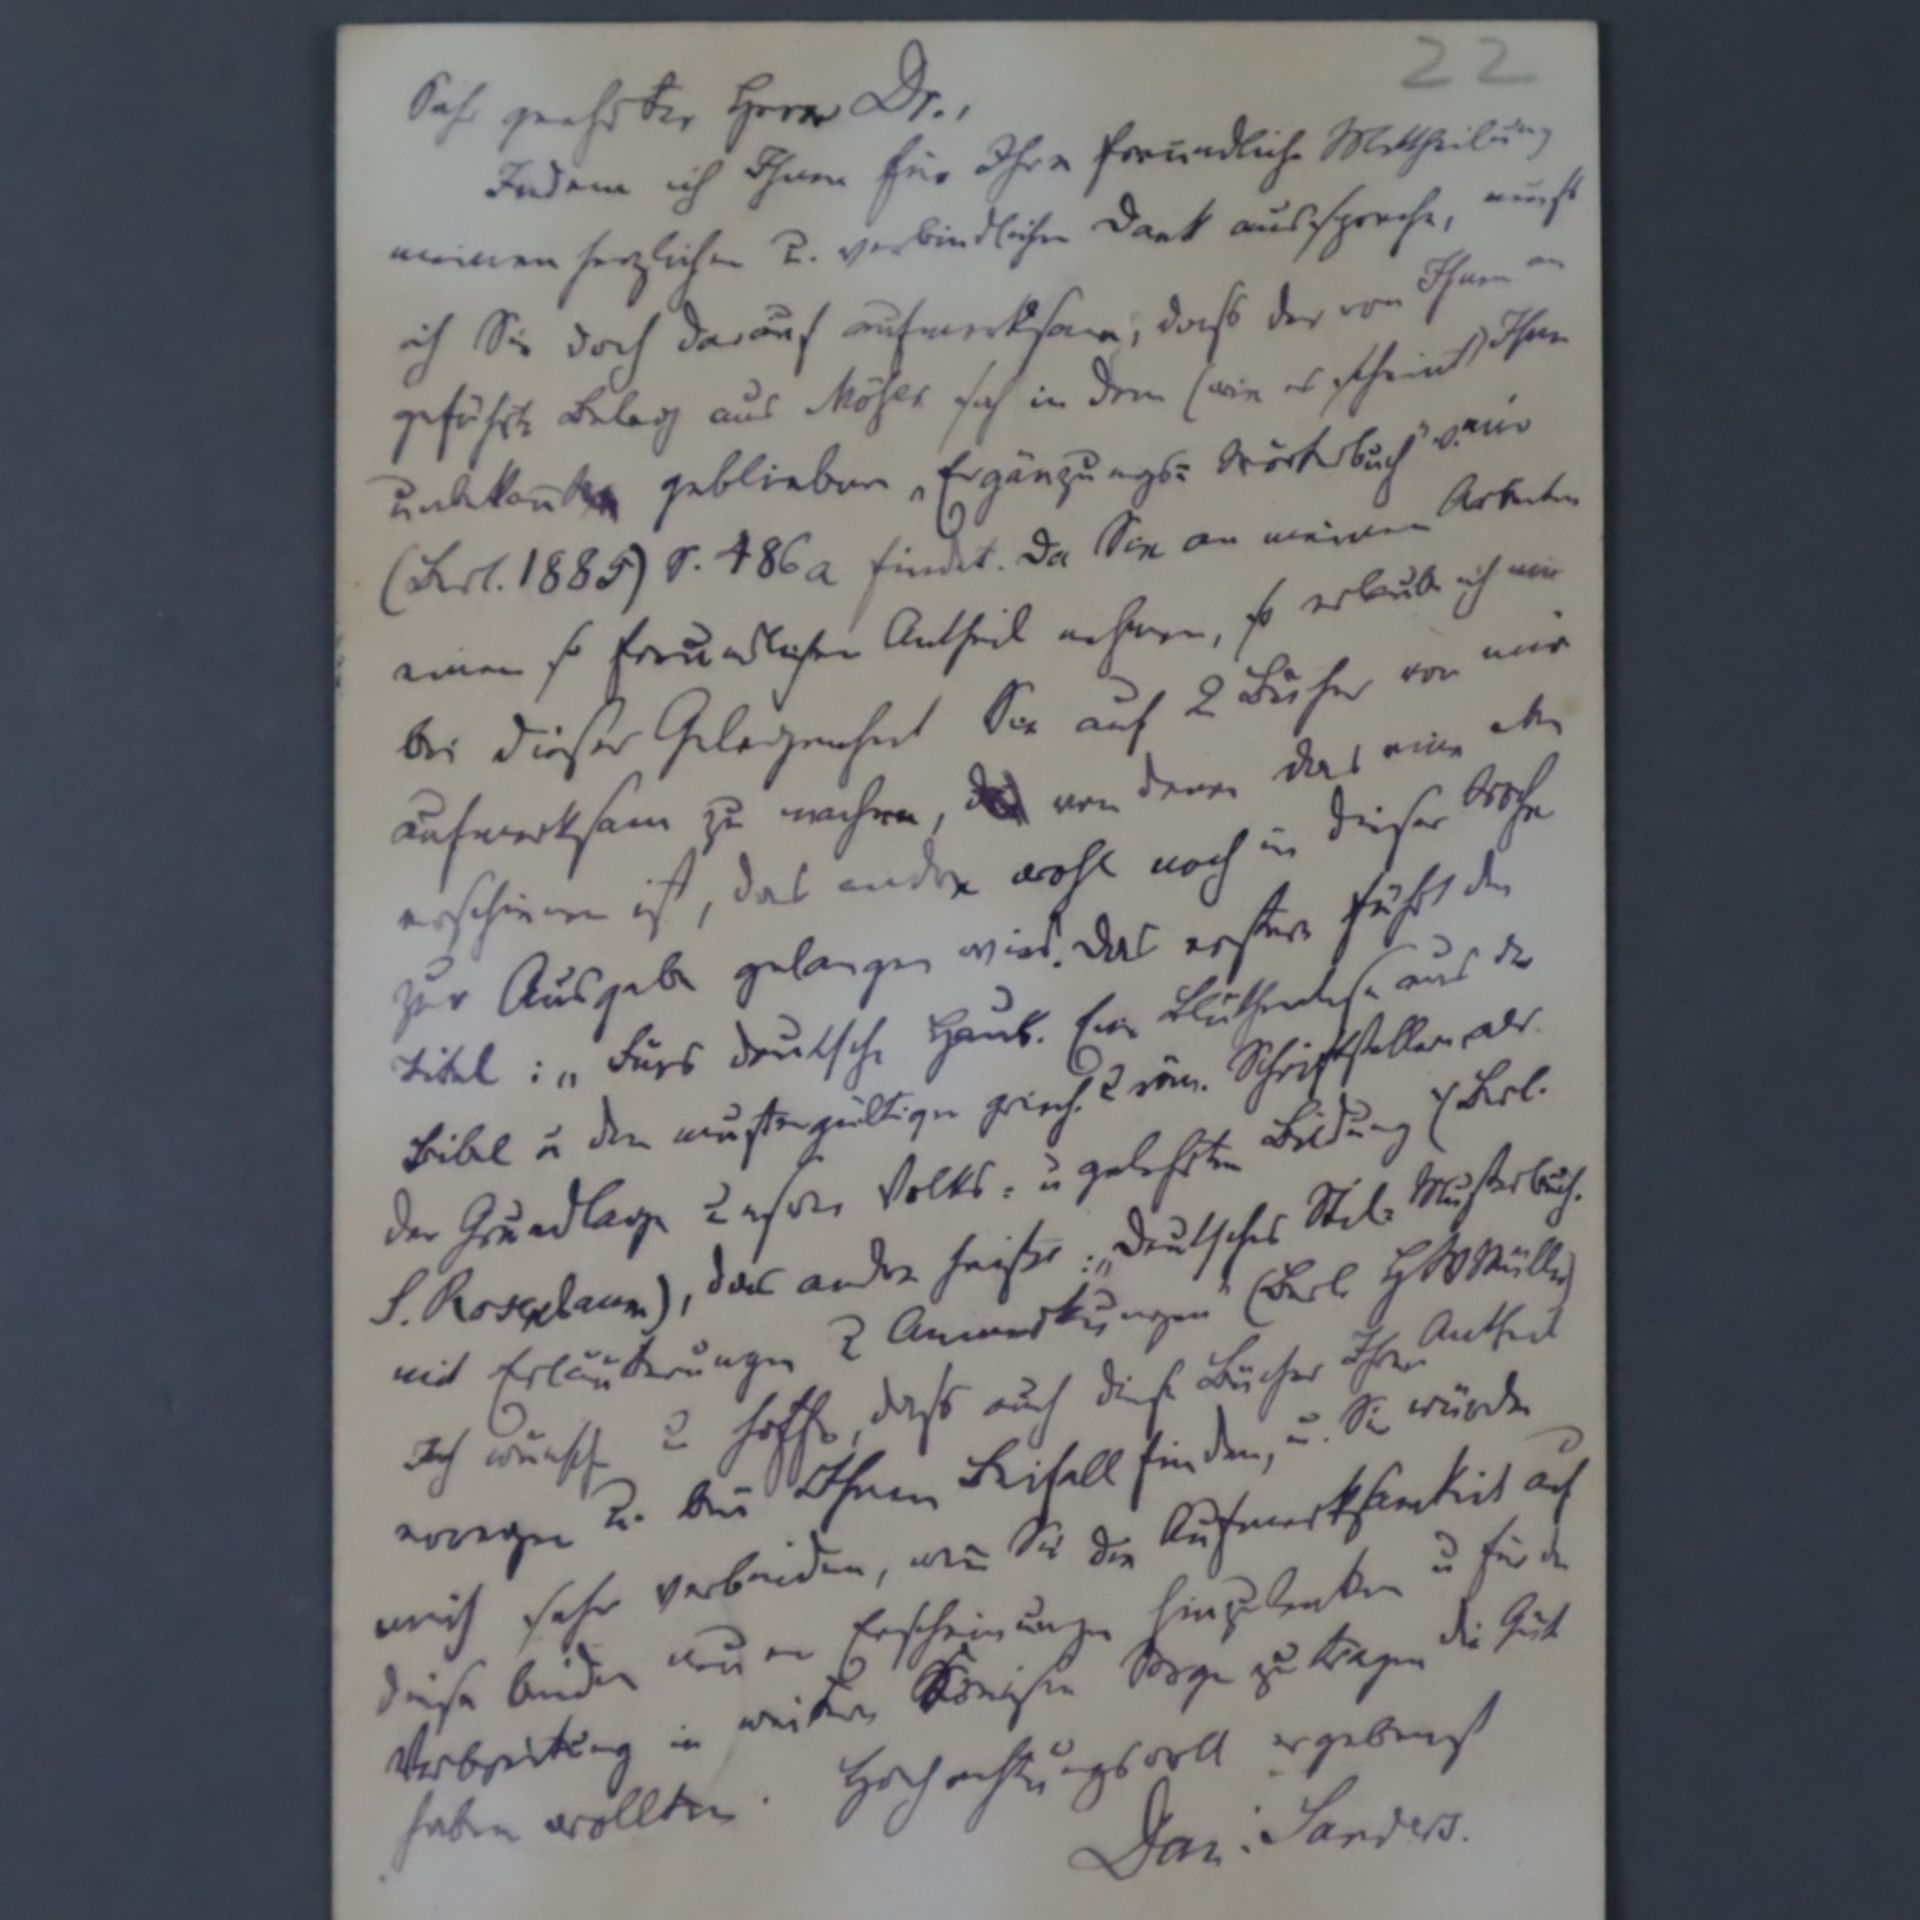 22
Sehr geehrter Herr Dr.,
Indem ich Ihnen für Ihre freundliche Mittheilung
meinen herzlichen u. verbindlichen Dank ausspreche, mach
ich Sie doch darauf aufmerksam, daß der von Ihnen an
geführte Beleg aus Möser sich in dem (wie es scheint) Ihnen
unbekannt gebliebenen „Ergänzungs-Wörterbuch" v. mir
(Berl. 1885) S. 486a findet. Da Sie an meinen Arbeiten
einen so freundlichen Antheil nehmen, so erlaube ich mir
bei dieser Gelegenheit Sie auf 2 Bücher von mir
aufmerksam zu machen, von denen das eine eben
erschienen ist, das andre wohl noch in dieser Woche
zur Ausgabe gelangen wird. Das erstere führt den
Titel: „Fürs deutsche Haus. Eine Blüthenlese aus der
Bibel u den mustergültigen griech. u röm. Schriftstellern als
der Grundlage unsrer Volks- u gelehrten Bildung (Berl.
S. Rosenbaum), das andre heißt: „Deutsches Stil-Musterbuch.
mit Erläuterungen u Anmerkungen" (Berl. H W Müller)
Ich wünsche u hoffe, daß auch diese Bücher Ihren Antheil
erregen u. bei Ihnen Beifall finden, u. Sie würden
mich sehr verbinden, wen̄ Sie die Aufmerksamkeit auf
diese beiden neuen Erscheinungen hinzulenken u für die
Verbreitung in weitern Kreisen Sorge zu tragen die Güte
haben wollten. Hochachtungsvoll ergebenst
Dan. Sanders.